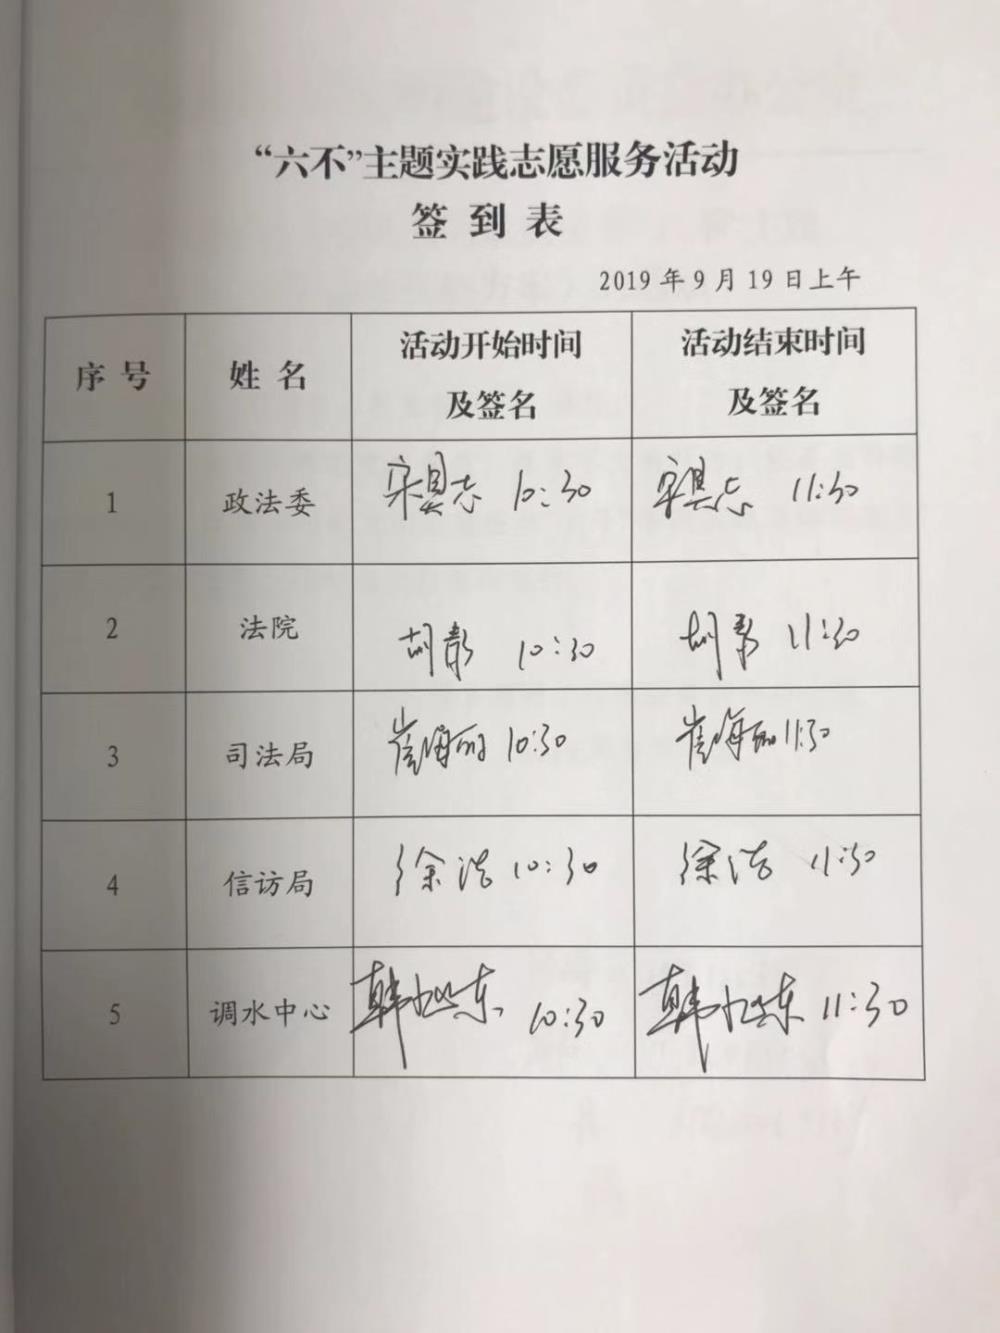 “六不”主题实践志愿服务活动
签到表
2019年9月19日上午
序号 姓名 活动开始时间及签名 活动结束时间及签名
1 政法委 宋县志 10:30 宋县志 11:30
2 法院 胡 10:30 胡 11:30
3 司法局 崔海丽 10:30 崔海丽 11:30
4 信访局 徐浩 10:30 徐浩 11:30
5 调水中心 韩旭东 10:30 韩旭东 11:30